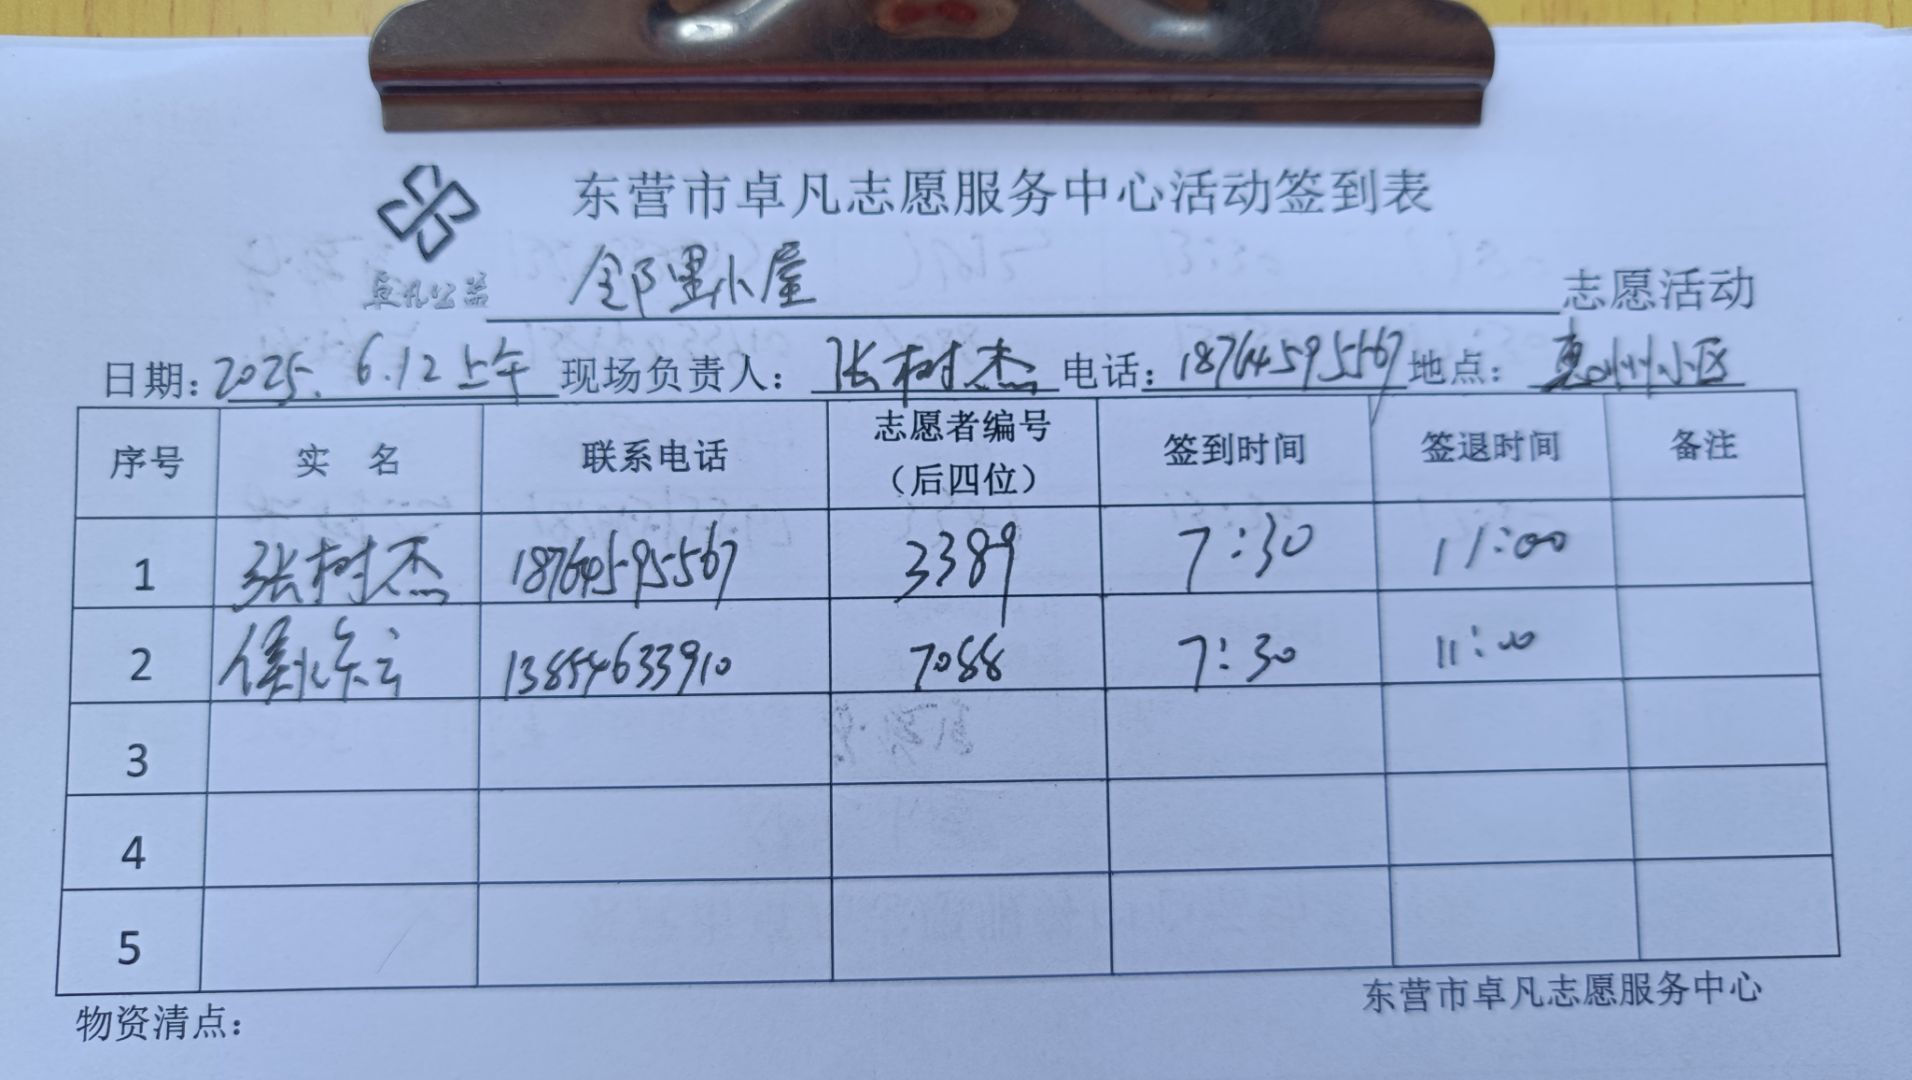 东营市卓凡志愿服务中心活动签到表
卓凡公益
邻里小屋 志愿活动
日期：2025.6.12上午 现场负责人：张树杰 电话：18764595567 地点：惠州小区
序号 实 名 联系电话 志愿者编号（后四位） 签到时间 签退时间 备注
1 张树杰 18764595567 3389 7:30 11:00
2 13854633910 7088 7:30 11:00
3
4
5
东营市卓凡志愿服务中心
物资清点：